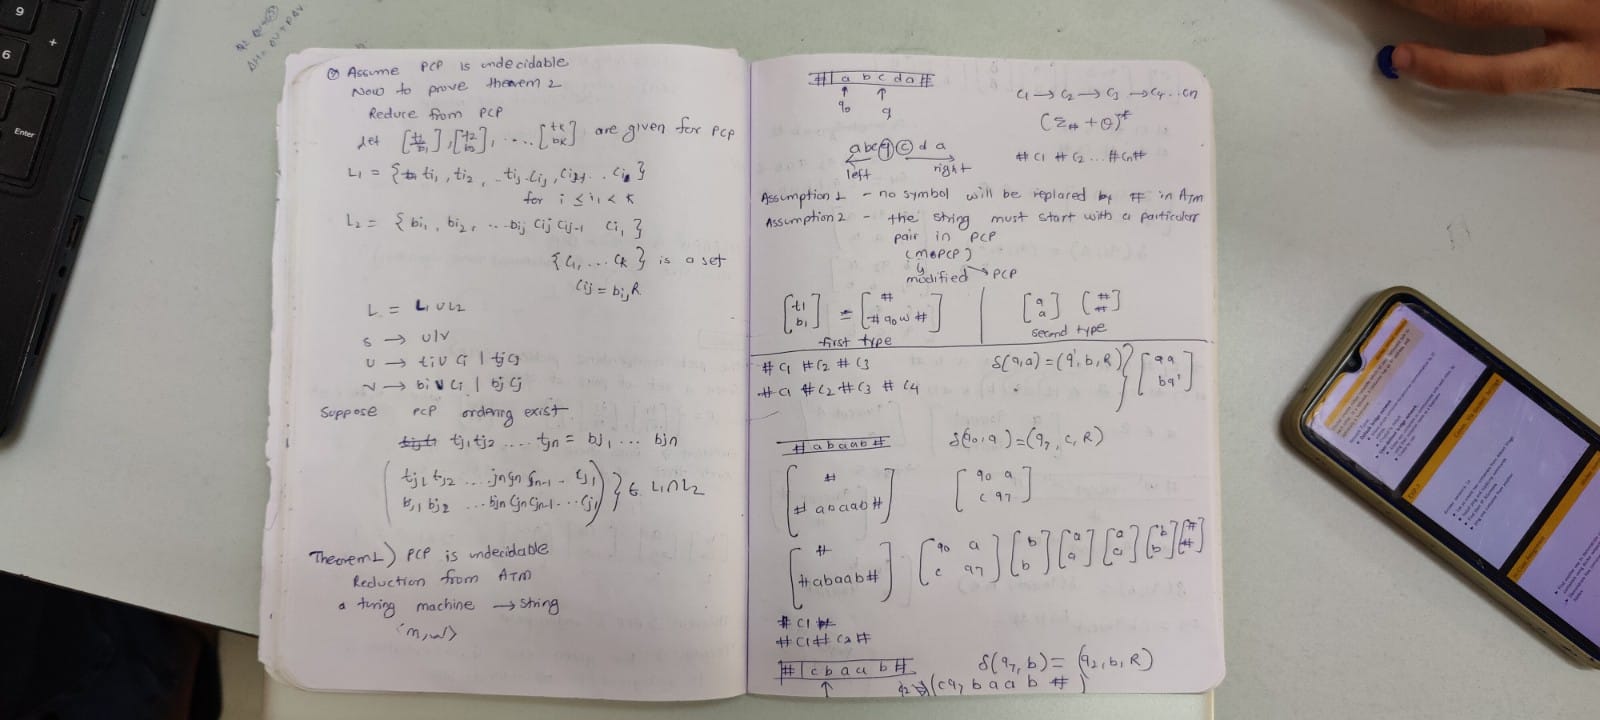 ② Assume PCP is undecidable
Now to prove theorem 2
Reduce from PCP
Let [t1/b1], [t2/b2], .... [tk/bk] are given for PCP
L1 = { ti1, ti2, .. tij Cij, Cij-1 . Ci1 }
for i ≤ i1 < k
L2 = { bi1, bi2, ... bij Cij Cij-1 Ci1 }
{C1, ... Ck} is a set
Cij = bijR
L = L1 ∪ L2
S → U|V
U → ti U Ci | tj Cj
V → bi V Ci | bj Cj
Suppose PCP ordering exist
tj1 tj2 .... tjn = bj1 ... bjn
(tj1 tj2 .... jn Cjn Cjn-1 .. Cj1
bj1 bj2 ... bjn Cjn Cjn-1 ... Cj1) } ∈ L1∩L2
Theorem 1) PCP is undecidable
Reduction from ATM
a turing machine → string
<m,w>
# | a b c d a #
↑ ↑
q0 q
C1 → C2 → C3 → C4 .. Cn
(Σ# + Q)*
a b c q c d a
left right
# C1 # C2 ... # Cn #
Assumption 1 - no symbol will be replaced by # in ATM
Assumption 2 - the string must start with a particular
pair in PCP
(MPCP)
modified PCP
[t1/b1] = [#/# q0 w #] | [a/a] [#/#]
first type second type
# C1 # C2 # C3
# C1 # C2 # C3 # C4
δ(q,a) = (q', b, R) } [qa/bq']
# a b a a b #
δ(q0, a) = (q7, c, R)
[#/# abaab#] [q0 a/c q7]
[#/# abaab#] [q0 a/c q7] [b/b] [a/a] [a/a] [b/b] [#/#]
# C1 #
# C1 # C2 #
# | c b a a b #
↑
δ(q7, b) = (q2, b, R)
(c q7 b a a b #)
9
6
+
Enter